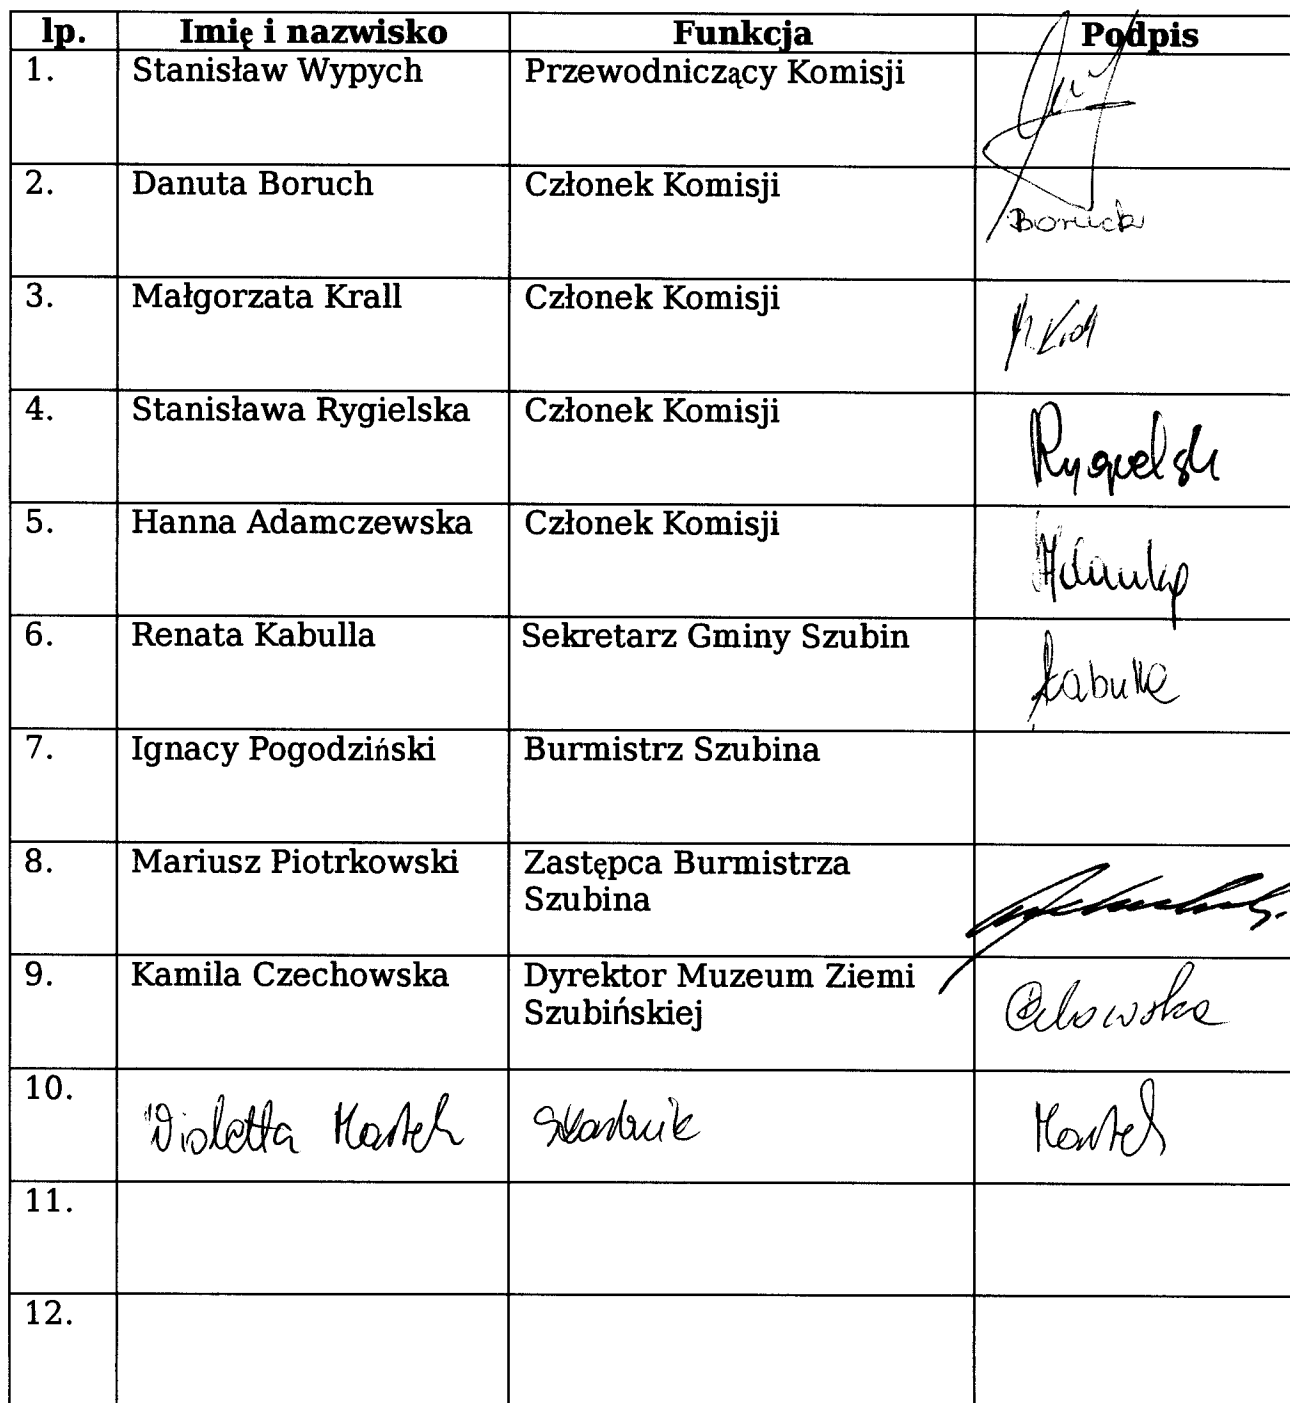 lp. Imię i nazwisko Funkcja Podpis
1. Stanisław Wypych Przewodniczący Komisji
2. Danuta Boruch Członek Komisji
3. Małgorzata Krall Członek Komisji
4. Stanisława Rygielska Członek Komisji
5. Hanna Adamczewska Członek Komisji
6. Renata Kabulla Sekretarz Gminy Szubin
7. Ignacy Pogodziński Burmistrz Szubina
8. Mariusz Piotrkowski Zastępca Burmistrza
Szubina
9. Kamila Czechowska Dyrektor Muzeum Ziemi
Szubińskiej
10. Violetta Skarbnik
11.
12.